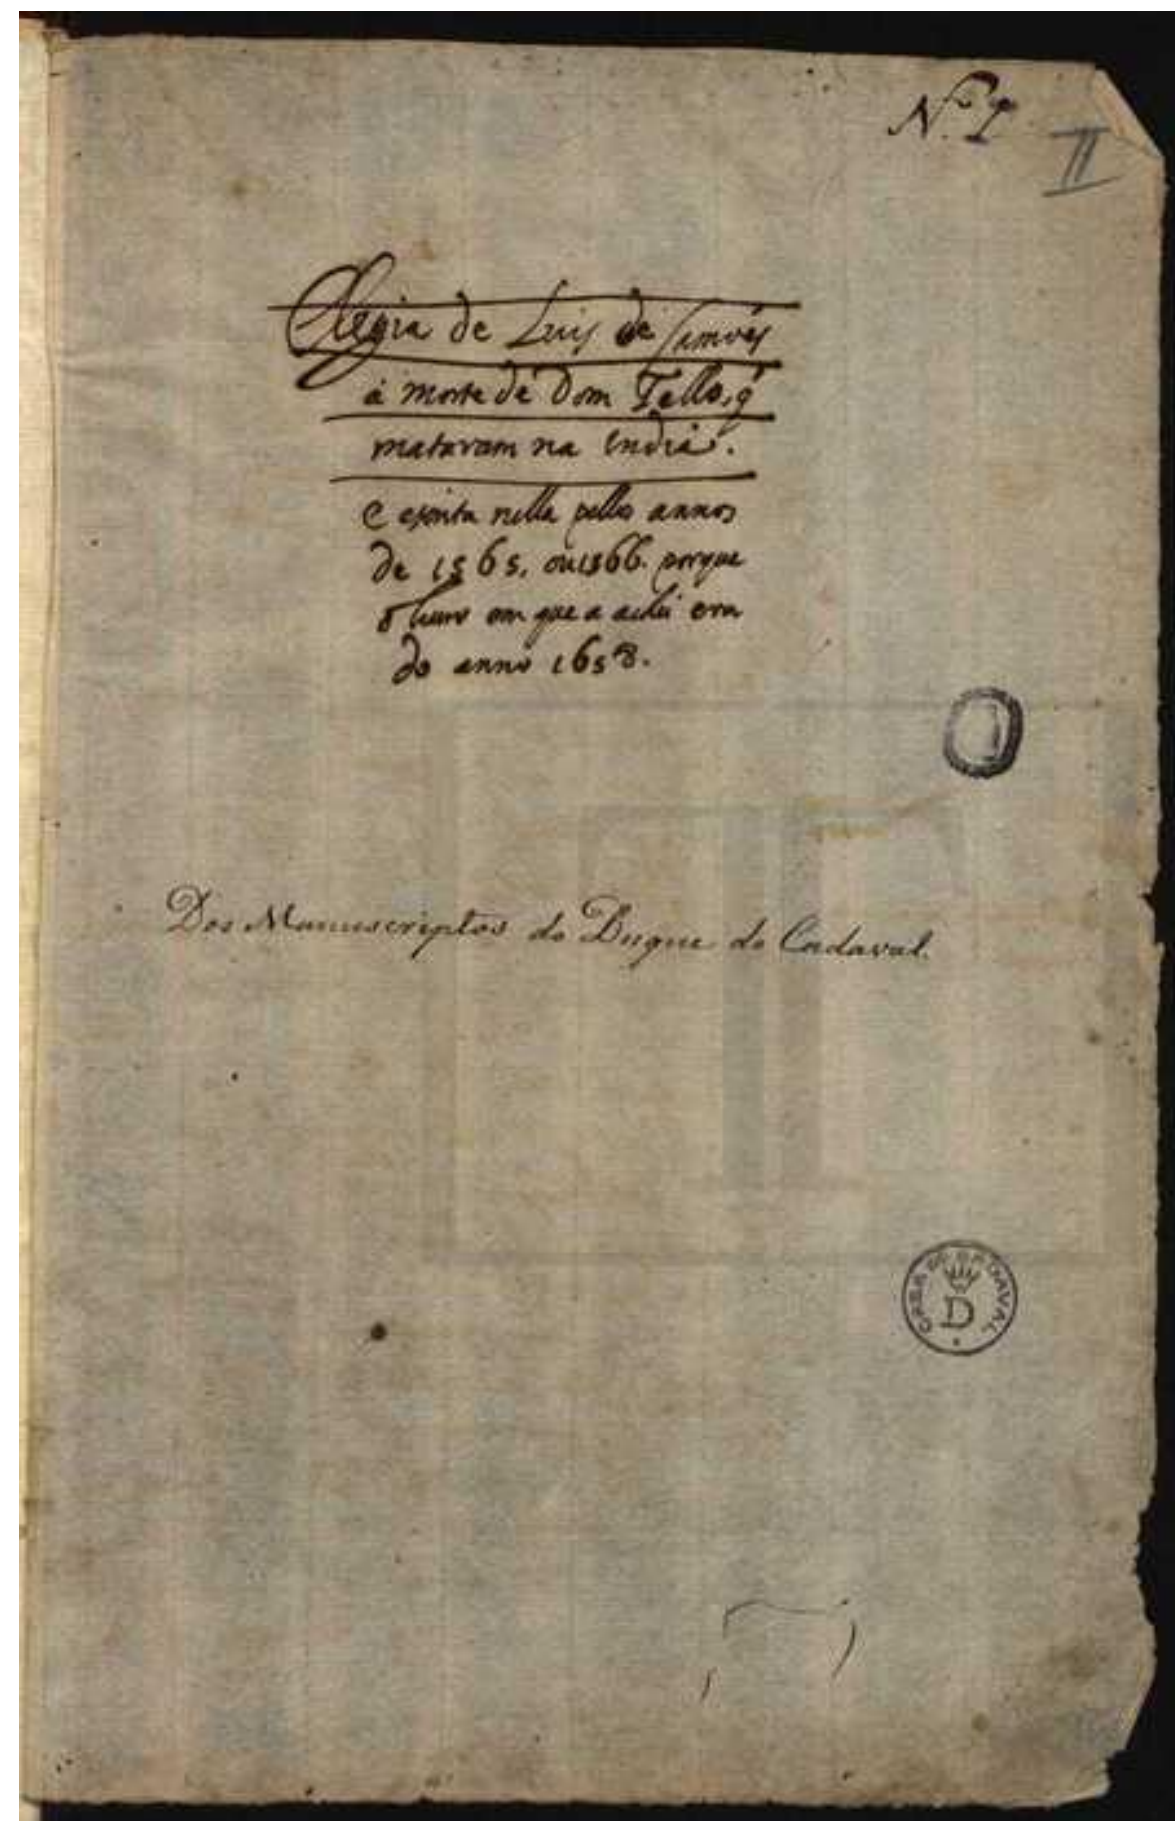 N.º 1
II
Elegia de Luis de Camoẽs
â morte de Dom Tello, q̃
mataram na India.
e escrita nella pellos annos
de 1565. ou 1566. porque
o liuro em que a achei era
do anno 1658.
Dos Manuscriptos do Duque do Cadaval.
CASA DE CADAVAL
D